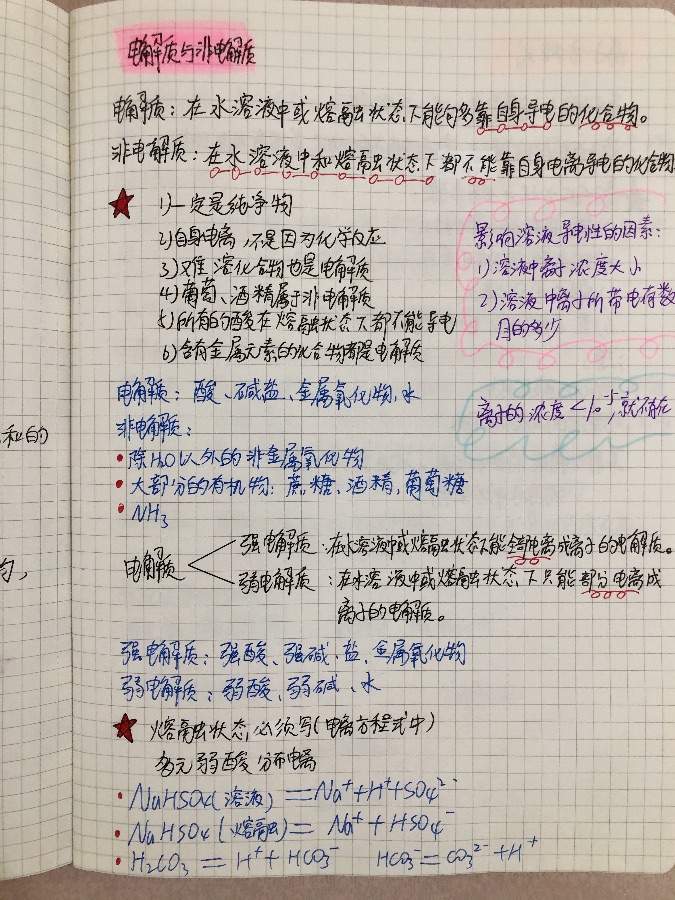 电解质与非电解质
电解质：在水溶液中或熔融状态下能够靠自身导电的化合物。
非电解质：在水溶液中和熔融状态下都不能靠自身电离导电的化合物
★ 1)一定是纯净物
2)自身电离,不是因为化学反应
3)难溶化合物也是电解质
4)葡萄、酒精属于非电解质
5)所有的酸在熔融状态下都不能导电
6)含有金属元素的化合物都是电解质
影响溶液导电性的因素：
1)溶液中离子浓度大小
2)溶液中离子所带电荷数
目的多少
离子的浓度<10⁻⁵,就不存在
电解质：酸、碱盐、金属氧化物,水
非电解质：
•除H₂O以外的非金属氧化物
•大部分的有机物：蔗糖、酒精,葡萄糖
•NH₃
和的
电解质
强电解质：在水溶液中或熔融状态下能全部电离成离子的电解质。
弱电解质：在水溶液中或熔融状态下只能部分电离成
离子的电解质。
强电解质：强酸、强碱、盐、金属氧化物
弱电解质：弱酸、弱碱、水
★ 熔融状态,必须写(电离方程式中)
多元弱酸分布电离
•NaHSO₄(溶液)=Na⁺+H⁺+SO₄²⁻
•NaHSO₄(熔融)=Na⁺+HSO₄⁻
•H₂CO₃=H⁺+HCO₃⁻ HCO₃⁻=CO₃²⁻+H⁺